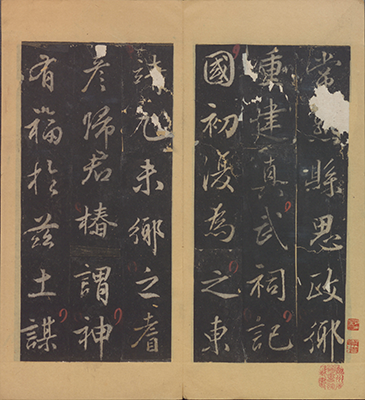 常熟縣思政鄉
重建真武祠記
國初為之東
元末鄉之耆
彥歸君椿謂神
有福於茲土謀